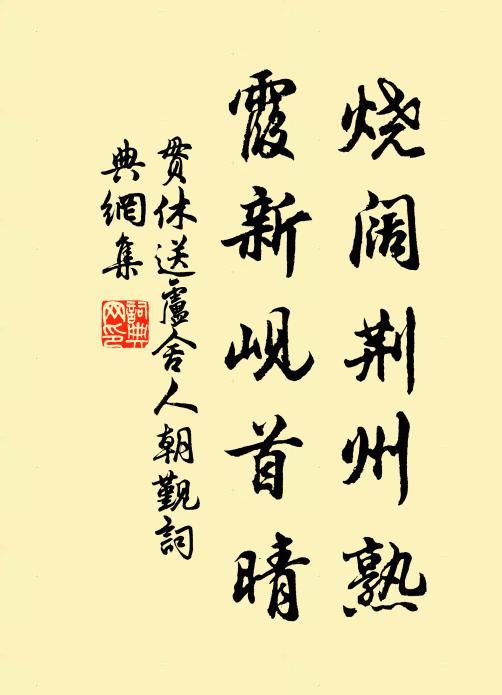 烧阔荆州熟
霞新岘首晴
贯休送盧舍人朝觐詞
典網集
詞典
网印